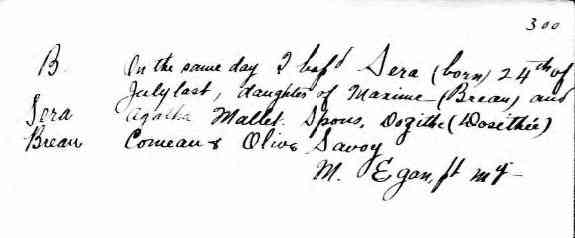 300
B. On the same day I bap'd Sera (born) 24th of
July last, daughter of Maxime (Breau) and
Sera Agatha Mallet. Spons. Dozithe (Dosithée)
Breau Comeau & Olive Savoy
M. Egan, pt my